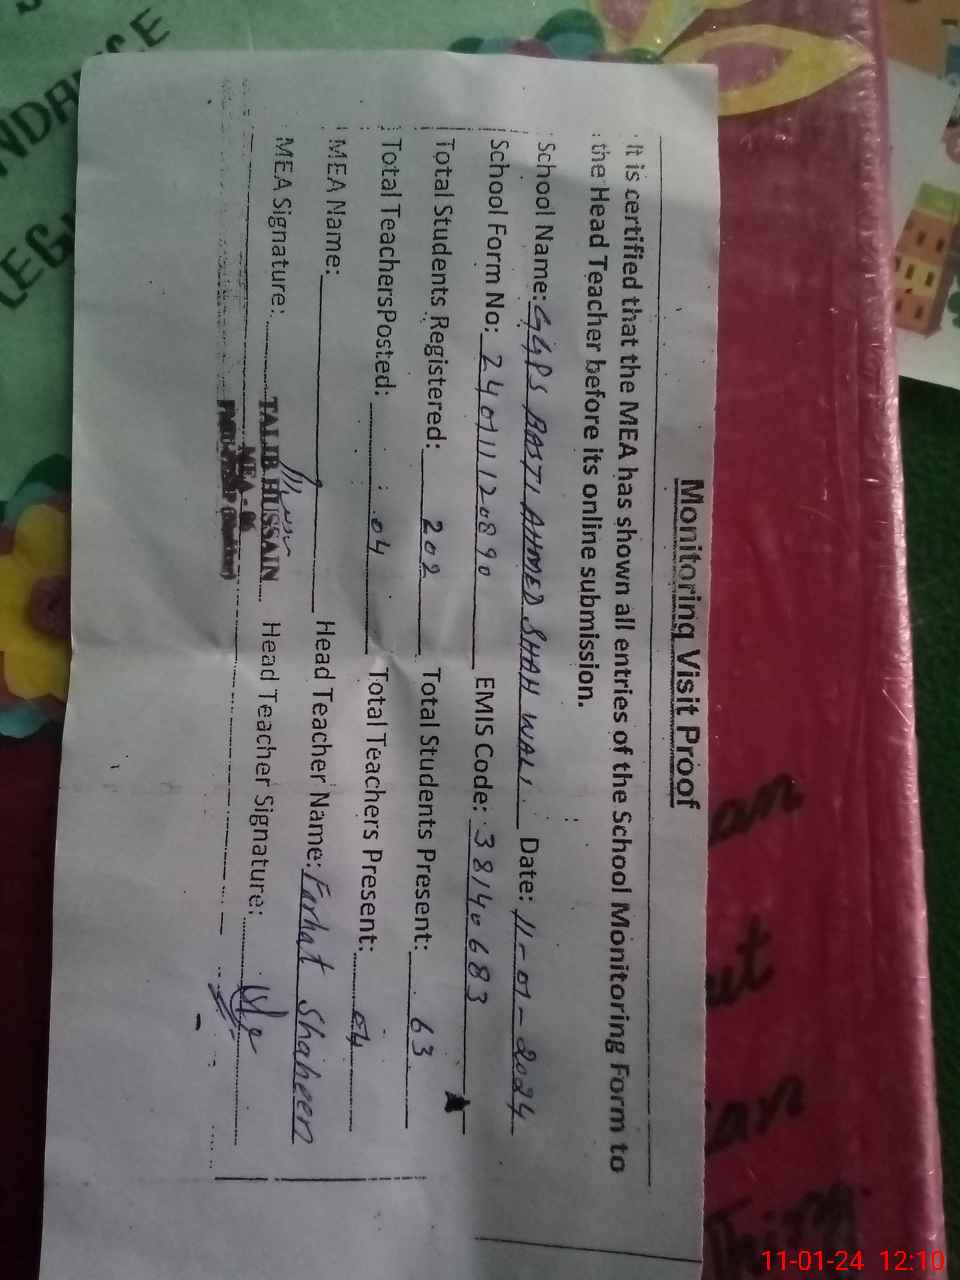 Monitoring Visit Proof
It is certified that the MEA has shown all entries of the School Monitoring Form to
the Head Teacher before its online submission.
School Name: GGPS BASTI AHMED SHAH WALI Date: 11-01-2024
School Form No: 240111120890 EMIS Code: 38140683
Total Students Registered: 202 Total Students Present: 63
Total TeachersPosted: 04 Total Teachers Present: 04
MEA Name: Head Teacher Name: Farhat Shaheen
MEA Signature: TALIB HUSSAIN Head Teacher Signature:
MEA-
an
ut
an
Thing
11-01-24 12:10